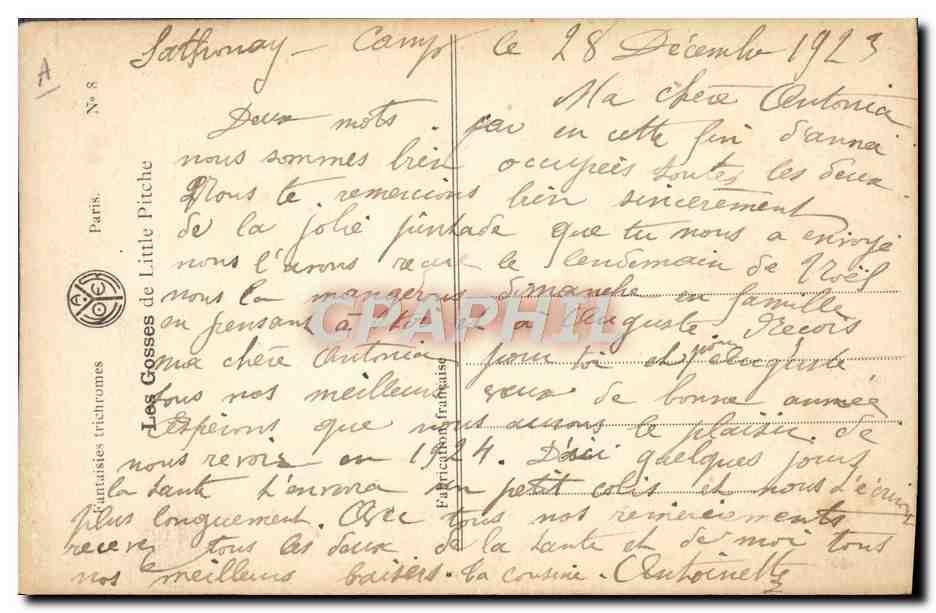 Sathonay - Camp le 28 Décembre 1923
Ma chère Antonia
Deux mots. car en cette fin d'année
nous sommes bien occupées toutes les deux
Nous te remercions bien sincèrement
de la jolie pintade que tu nous a envoyé
nous l'avons reçue le lendemain de Noël
nous la mangerons dimanche en famille
en pensant à toi et à Auguste. Reçois
ma chère Antonia pour toi et pour Auguste
tous nos meilleurs vœux de bonne année
Espérons que nous aurons le plaisir de
nous revoir en 1924. D'ici quelques jours
la tante t'enverra un petit colis et nous t'écrirons
plus longuement. Avec tous nos remerciements
recevez tous les deux de la tante et de moi tous
nos meilleurs baisers. ta cousine. Antoinette
A
N° 8
Fantaisies trichromes Paris.
Les Gosses de Little Pitche
Fabrication française
CPAPHIL